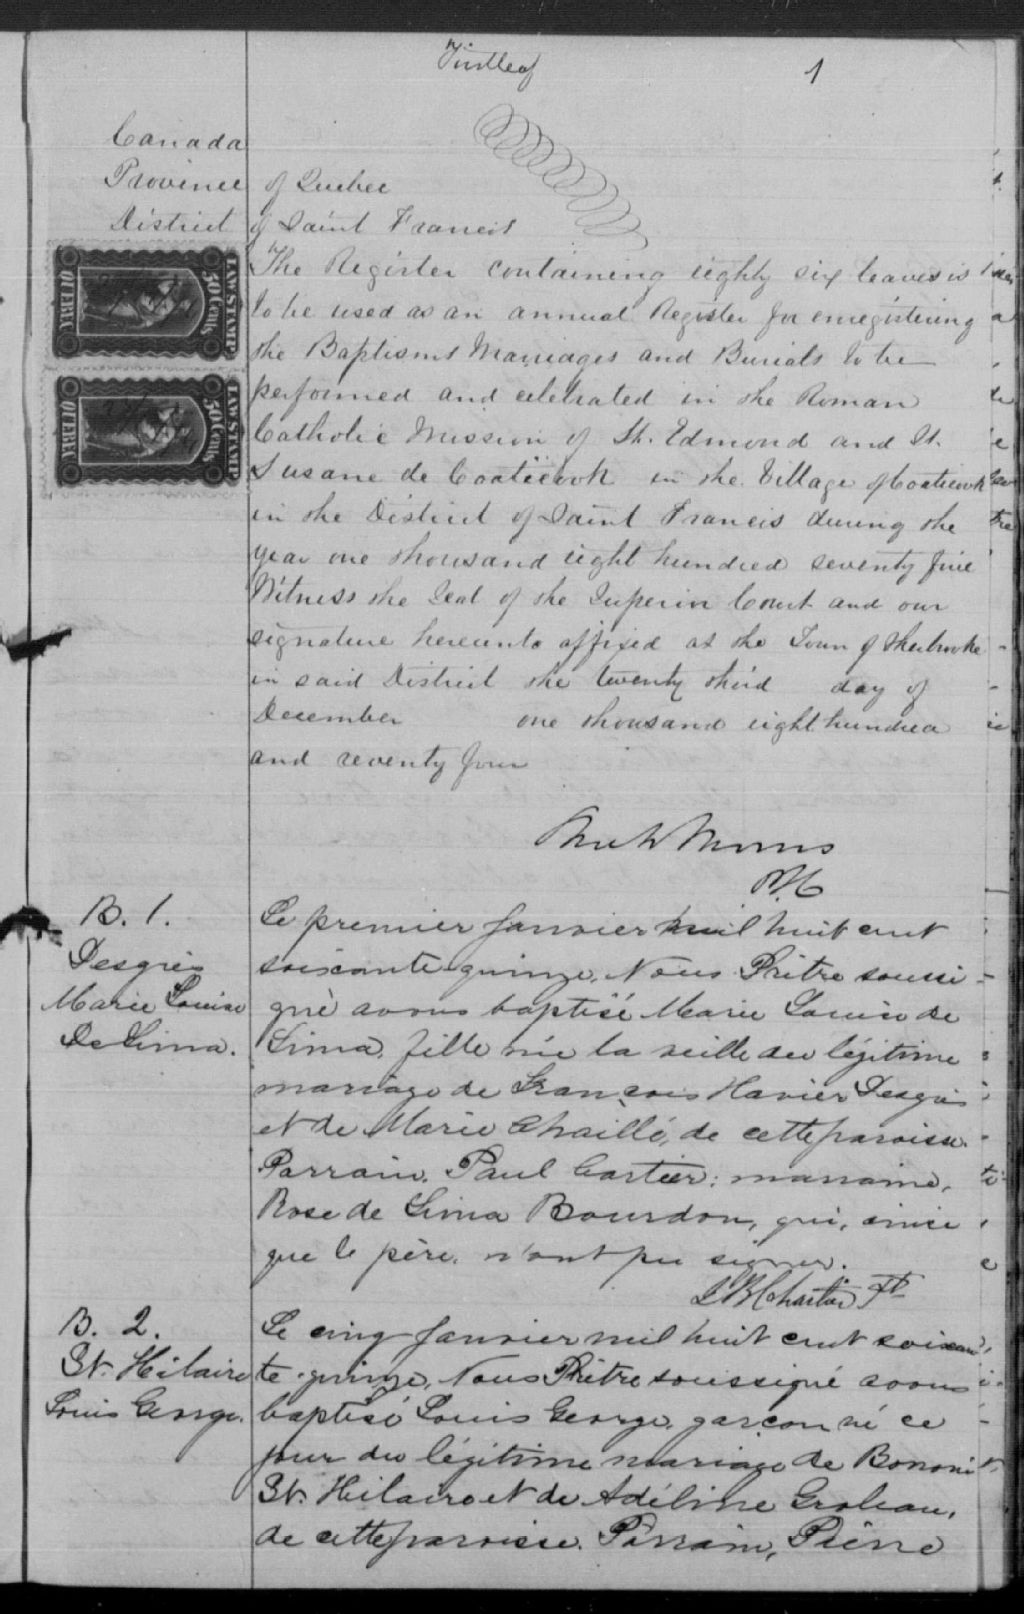 First leaf
1
Canada
Province of Quebec
District of Saint Francis
The Register containing eighty six leaves is
to be used as an annual Register for enregistering
the Baptisms Marriages and Burials to be
performed and celebrated in the Roman
Catholic Mission of St. Edmond and St.
Susane de Coaticook in the Village of Coaticook
in the District of Saint Francis during the
year one thousand eight hundred seventy five
Witness the Seal of the Superior Court and our
signature hereunto affixed at the Town of Sherbrooke
in said District the twenty third day of
December one thousand eight hundred
and seventy four
LAW STAMP
30 Cents
QUEBEC
LAW STAMP
30 Cents
QUEBEC
Morris
B. 1.
Desgrès
Marie Louise
De Lima.
Le premier Janvier mil huit cent
soixante-quinze, Nous Prêtre soussi-
gné avons baptisé Marie Louise de
Lima, fille née la veille du légitime
mariage de François Xavier Desgrès
et de Marie Chaillé, de cette paroisse.
Parrain, Paul Cartier; marraine,
Rose de Lima Bourdon, qui, ainsi
que le père, n'ont pu signer.
J B Chartier Ptr
B. 2.
St. Hilaire
Louis George.
Le cinq Janvier mil huit cent soixan
te-quinze, Nous Prêtre soussigné avons
baptisé Louis George, garçon né ce
jour du légitime mariage de Bononi
St. Hilaire et de Adéline Groleau,
de cette paroisse. Parrain, Pierre